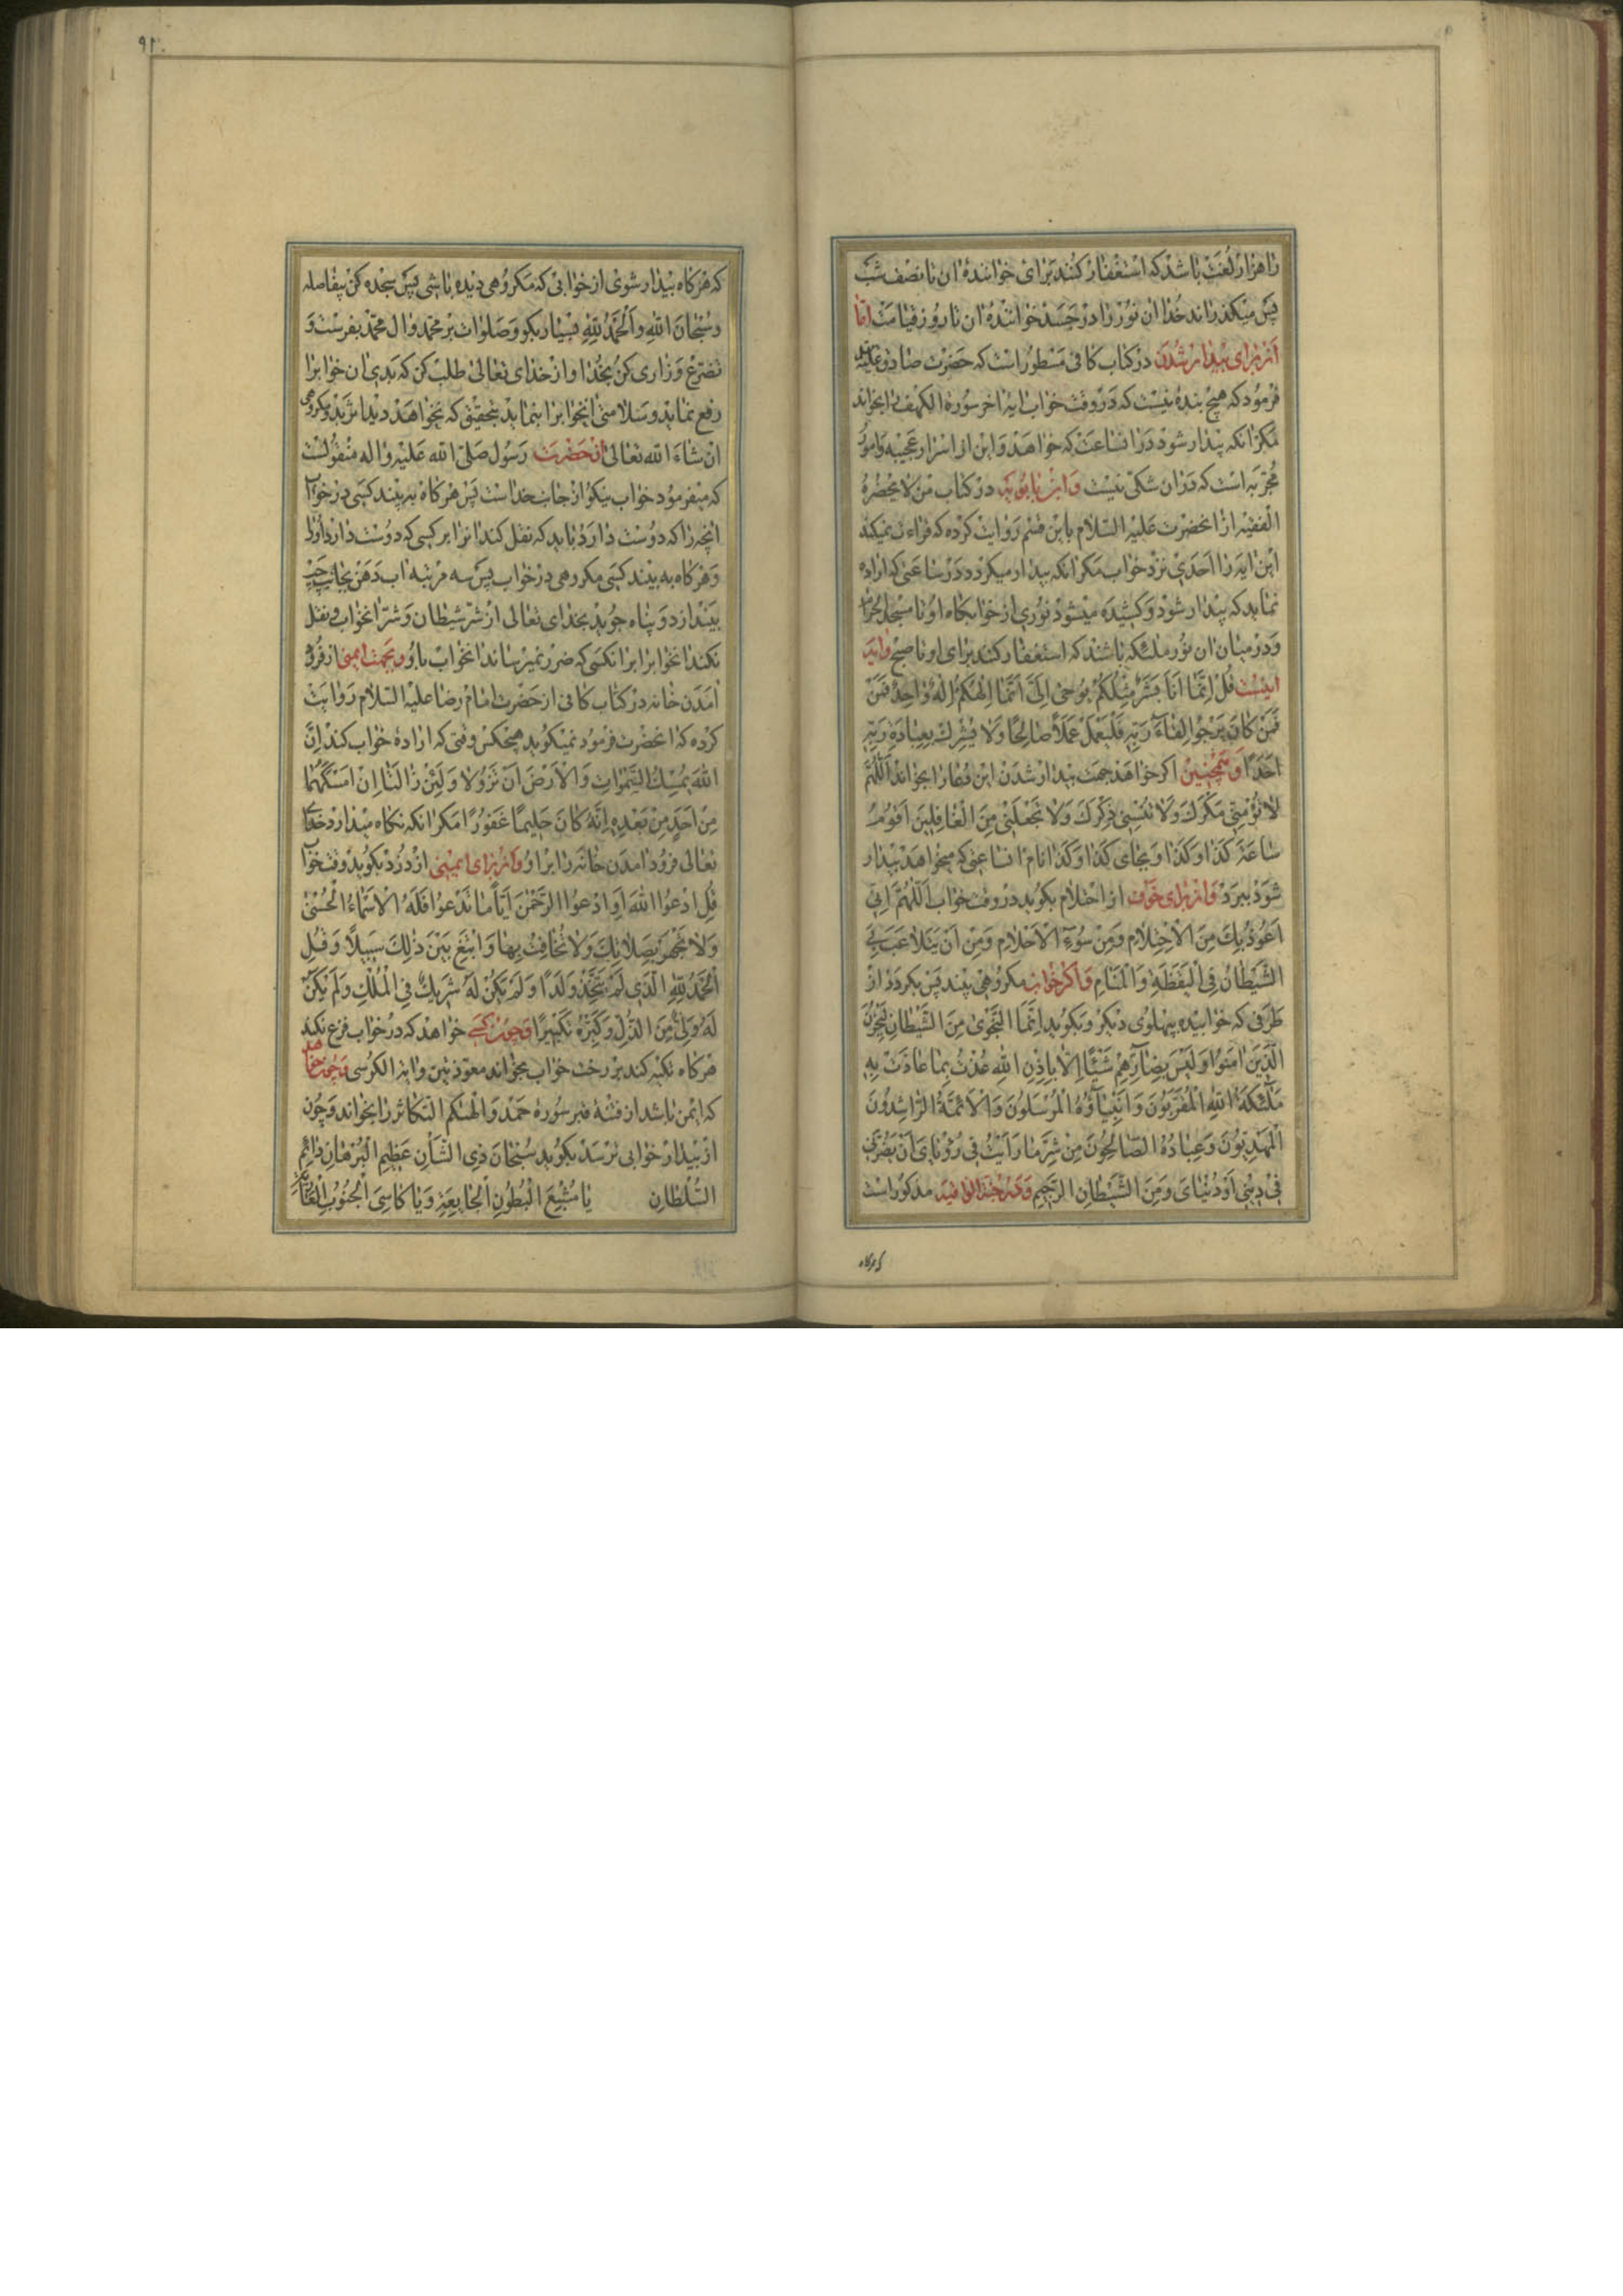 را هزار لغت باشد که استغفار کنند برای خواننده ان تا نصف شب
پس میکذراند خدا ان نور را در جسد خواننده ان تا روز قیامت اما
از برای بیدار شدن در کتاب کافی مسطور است که حضرت صادق علیه
فرمود که هیچ بنده نیست که در وقت خواب ایه اخر سوره الکهف را بخواند
مکر انکه بیدار شود در انساعت که خواهد و این از اسرار عجیبه و امور
مجربه است که در ان شکی نیست و ابن بابویه در کتاب من لا یحضره
الفقیه از انحضرت علیه السلام باین قسم روایت کرده که قراءت نمیکند
این ایه را احدی نزد خواب مکر انکه بیدار میکردد در ساعتی که اراده
نماید که بیدار شود و کشیده میشود نوری از خوابکاه او تا مسجد الحرام
و در میان ان نور ملئکه باشند که استغفار کنند برای او تا صبح و ایه
اینست قُل اِنَّما اَنَا بَشَرٌ مِثْلُکُمْ یُوحی اِلَیَّ اَنَّما اِلهُکُمْ اِلهٌ واحِدٌ فَمَنْ
فَمَنْ کانَ یَرْجُوا لِقاءَ رَبِّهِ فَلْیَعْمَلْ عَمَلاً صالِحًا وَلا یُشْرِك بِعِبادَةِ رَبِّهِ
اَحَدًا و همچنین اکر خواهد جهت بیدار شدن این دعا را بخواند اَللّهُمَّ
لا تُؤْمِنّی مَکْرَكَ وَلا تُنْسِنی ذِکْرَكَ وَلا تَجْعَلْنی مِنَ الْغافِلینَ اَقُومُ
ساعَةَ کَذا وَکَذا و بجای کذا و کذا نام انساعتی که میخواهد بیدار
شود ببرد و از برای خوف از احتلام بکوید در وقت خواب اَللّهُمَّ اِنّی
اَعُوذُ بِكَ مِنَ الاِحْتِلامِ وَمِنْ سُوءِ الاَحْلامِ وَمِنْ اَنْ یَتَلاعَبَ بِیَ
الشَّیْطانُ فِی الْیَقَظَةِ وَالْمَنامِ و اکر خواب مکروهی بیند پس بکردد از
طرفی که خوابیده بپهلوی دیکر و بکوید اِنَّمَا النَّجْوی مِنَ الشَّیْطانِ لِیَحْزُنَ
الَّذینَ امَنُوا وَلَیْسَ بِضارِّهِمْ شَیْئًا اِلاّ بِاِذْنِ اللهِ عُذْتُ بِما عاذَتْ بِهِ
مَلئِکَةُ اللهِ الْمُقَرَّبُونَ وَاَنْبِیاؤُهُ الْمُرْسَلُونَ وَالاَئِمَّةُ الرّاشِدُونَ
الْمَهْدِیُّونَ وَعِبادُهُ الصّالِحُونَ مِنْ شَرِّ ما رَاَیْتُ فی رُؤْیایَ اَنْ یَضُرَّنی
فی دینی اَوْ دُنْیایَ وَمِنَ الشَّیْطانِ الرَّجیمِ و در جنة الواقیه مذکور است
که هرکاه
که هرکاه بیدار شوی از خوابی که مکروهی دیده باشی پس سجده کن بیفاصله
و سبحان الله و الحمد لله بسیار بکو و صلوات بر محمد و ال محمد بفرست و
تضرع و زاری کن بخدا و از خدای تعالی طلب کن که بدی ان خوابرا
رفع نماید و سلامتی انخوابرا بنماید بتحقیق که نخواهد دید اثر بد و مکروهی
ان شاء الله تعالی از حضرت رسول صلی الله علیه و اله منقولست
که میفرمود خواب نیکو از جانب خداست پس هرکاه به بیند کسی در خواب
انچه را که دوست دارد باید که نقل کند انرا بر کسی که دوست دارد او را
و هرکاه به بیند کسی مکروهی در خواب پس سه مرتبه اب دهن بجانب چپ
بیندازد و پناه جوید بخدای تعالی از شر شیطان و شر انخواب و نقل
نکند انخوابرا برا نکسی که ضرر نمیرساند انخواب باو و بجهت ایمنی از فرو
امدن خانه در کتاب کافی از حضرت امام رضا علیه السلام روایت
کرده که انحضرت فرمود نمیکوید هیچکس وقتی که اراده خواب کند اِنَّ
اللهَ یُمْسِكُ السَّمواتِ وَالاَرْضَ اَنْ تَزُولا وَلَئِنْ زالَتا اِنْ اَمْسَکَهُما
مِنْ اَحَدٍ مِنْ بَعْدِهِ اِنَّهُ کانَ حَلیمًا غَفُورًا مکر انکه نکاه میدارد خدای
تعالی فرود امدن خانه را بر او و از برای ایمنی از دزد بکوید وقت خواب
قُلِ ادْعُوا اللهَ اَوِ ادْعُوا الرَّحْمنَ اَیّاً ما تَدْعُوا فَلَهُ الاَسْماءُ الْحُسْنی
وَلا تَجْهَرْ بِصَلاتِكَ وَلا تُخافِتْ بِها وَابْتَغِ بَیْنَ ذلِكَ سَبیلاً وَقُلِ
الْحَمْدُ لِلّهِ الَّذی لَمْ یَتَّخِذْ وَلَدًا وَلَمْ یَکُنْ لَهُ شَریكٌ فِی الْمُلْكِ وَلَمْ یَکُنْ
لَهُ وَلِیٌّ مِنَ الذُّلِّ وَکَبِّرْهُ تَکْبیرًا و چون کسی خواهد که در خواب فزع نکند
هرکاه تکیه کند بر رخت خواب بخواند معوذتین و ایة الکرسی و چون خواهد
که ایمن باشد از فتنه قبر سوره حمد و الهیکم التکاثر را بخواند و چون
از بیدار خوابی ترسد بکوید سُبْحانَ ذِی الشَّأْنِ عَظیمِ الْبُرْهانِ دائِمِ
السُّلْطانِ یا مُشْبِعَ الْبُطُونِ الْجایِعَةِ وَیا کاسِیَ الْجُنُوبِ الْعارِیَةِ